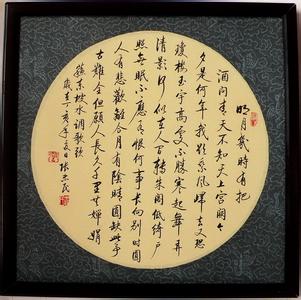 明月幾时有把
酒问青天不知天上宫阙今
夕是何年我欲乘风归去又恐
瓊楼玉宇高处不胜寒起舞弄
清影何似在人间转朱阁低绮户
照无眠不应有恨何事长向别时圆
人有悲歡離合月有陰晴圆缺此事
古難全但願人長久千里共婵娟
蘇東坡水调歌头
歲丁亥年夏日张民